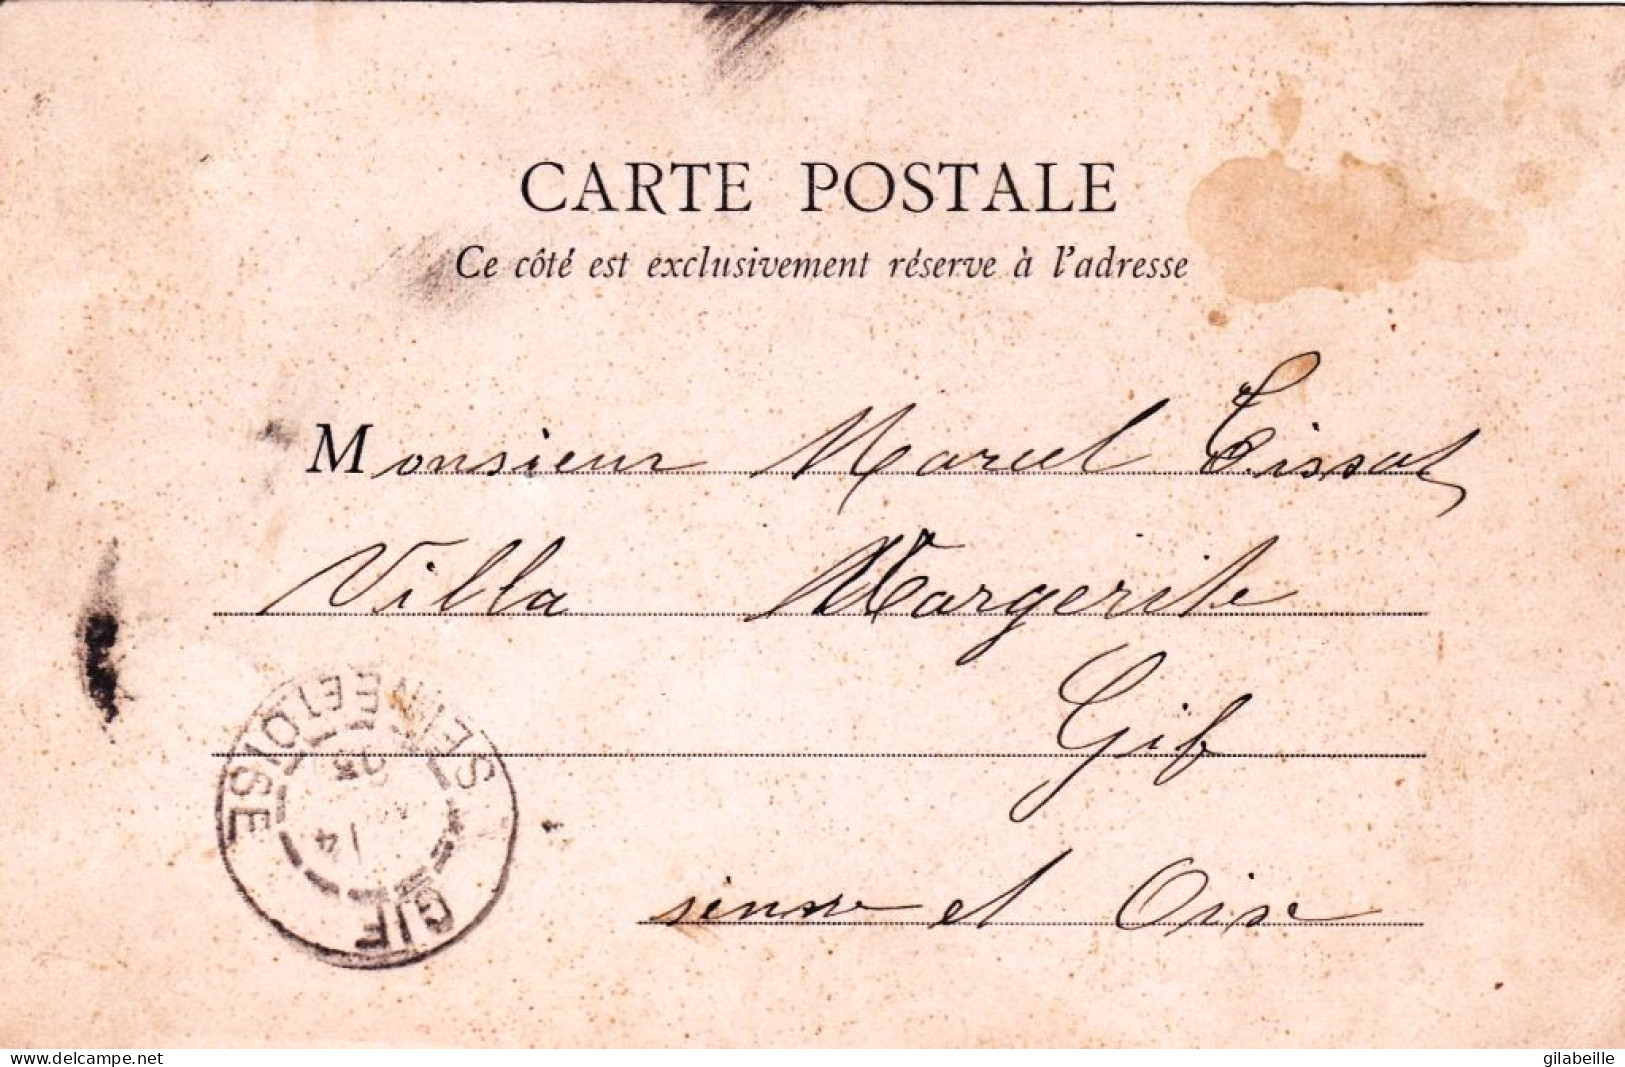 CARTE POSTALE
Ce côté est exclusivement réserve à l'adresse
Monsieur Marcel Tissot
Villa Margerite
Gif
seine et Oise
SEINE ET OISE
14
03
GIF
delcampe.net
gilabeille